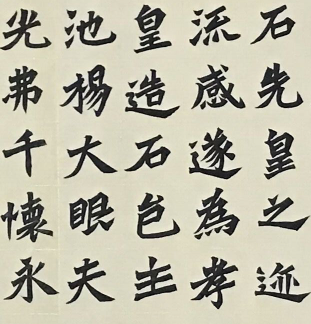 石先皇之迹
流感遂為孝
皇造石邑主
池楊大眼夫
光弗千懷永